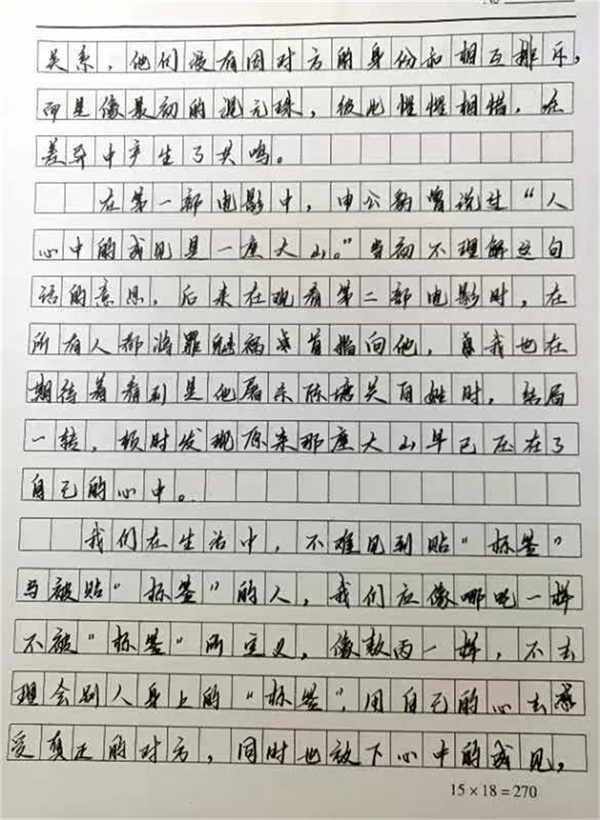 关系，他们没有因对方的身份和相互排斥，
而是像最初的混元珠，彼此惺惺相惜，在
差异中产生了共鸣。
在第一部电影中，申公豹曾说过“人
心中的成见是一座大山。”当初不理解这句
话的意思，后来在观看第二部电影时，在
所有人都将罪魁祸首指向他，我也在
期待着看到是他屠杀陈塘关百姓时，结局
一转，顿时发现原来那座大山早已压在了
自己的心中。
我们在生活中，不难见到贴“标签”
与被贴“标签”的人，我们应像哪吒一样
不被“标签”所定义，像敖丙一样，不去
理会别人身上的“标签”，用自己的心去感
受真正的对方，同时也放下心中的成见，
15×18=270